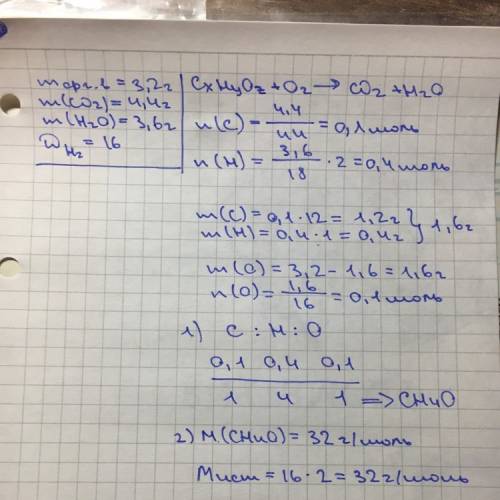 m орг.в = 3,2г
m(CO2)=4,4г
m(H2O)=3,6г
D H2 = 16
CxHyOz + O2 → CO2 + H2O
n(C) = 4,4/44 = 0,1 моль
n(H) = 3,6/18 · 2 = 0,4 моль
m(C) = 0,1·12 = 1,2г } 1,6г
m(H) = 0,4·1 = 0,4г
m(O) = 3,2 - 1,6 = 1,6г
n(O) = 1,6/16 = 0,1 моль
1) C : H : O
0,1 0,4 0,1
1 4 1 => CH4O
2) M(CH4O) = 32 г/моль
Mист = 16·2 = 32 г/моль